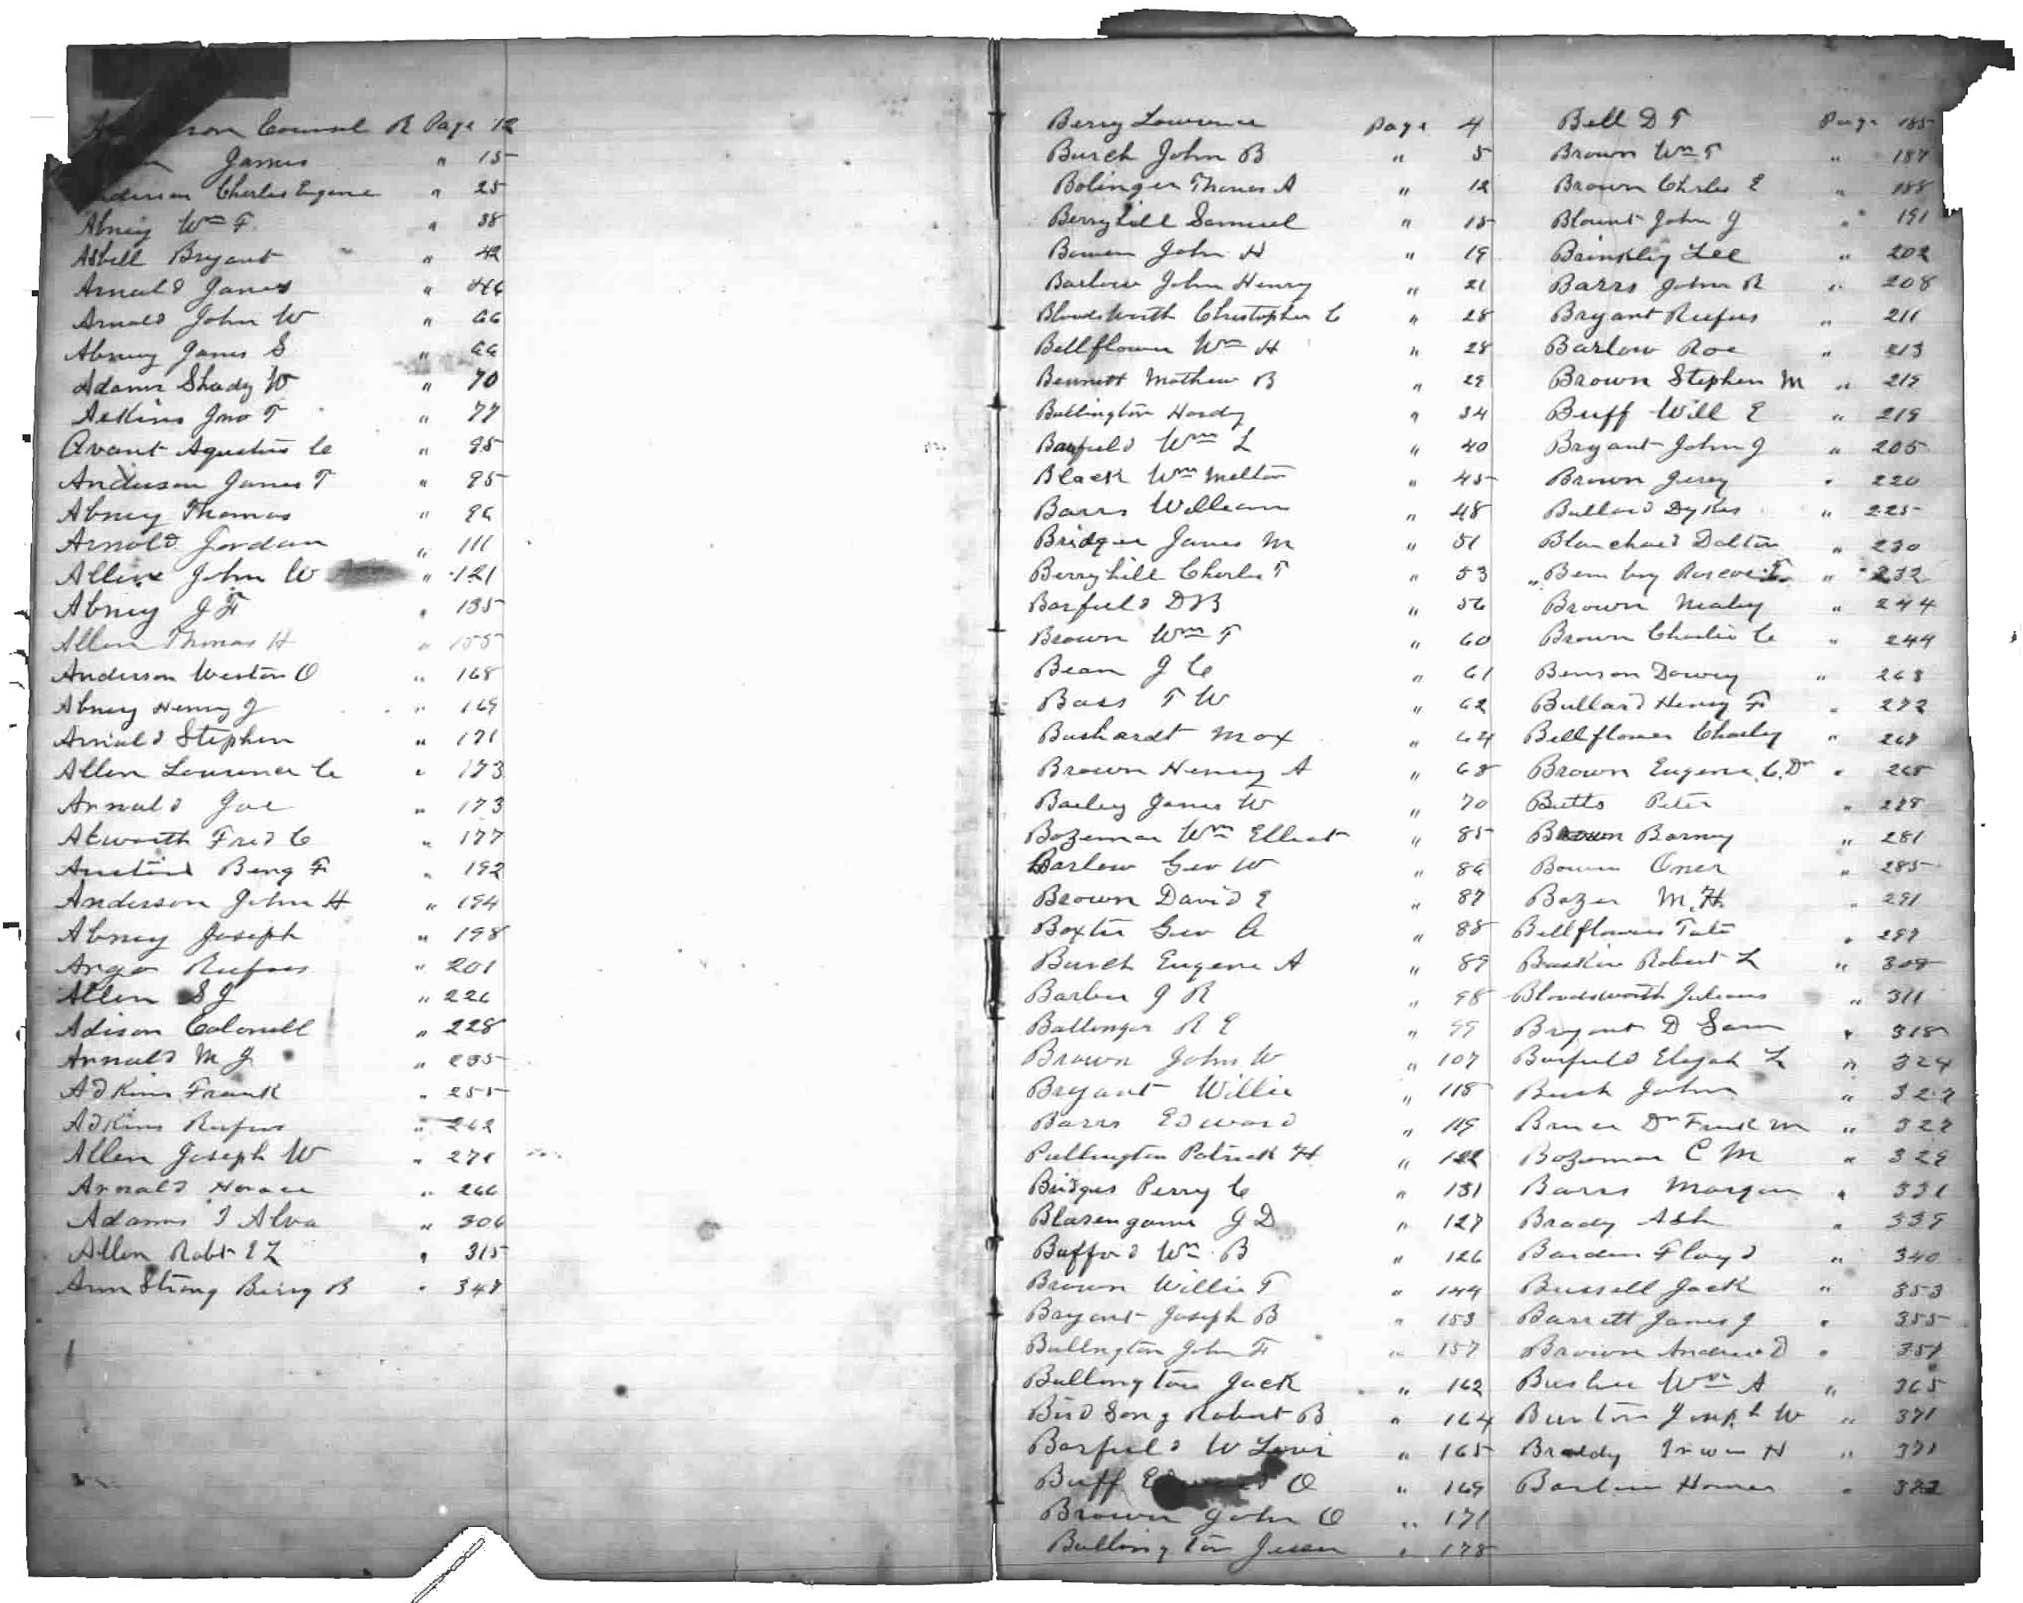 son Counsel R Page 12
James " 15
Anderson Charles Eugene " 25
Abney Wm F. " 38
Asbell Bryant " 42
Arnald James " 46
Arnald John W " 66
Abney James S " 66
Adams Shady W " 70
Askins Jno T " 77
Avant Agustus C " 95
Anderson James T " 95
Abney Thomas " 96
Arnold Jordan " 111
Allen John W " 121
Abney J F " 135
Allen Thomas H " 155
Anderson Weston O " 168
Abney Henry J " 169
Arnald Stephen " 171
Allen Lawrence C " 173
Arnald Joe " 173
Atworth Fred C " 177
Austin Benj F " 192
Anderson John H " 194
Abney Joseph " 198
Argo Rufus " 201
Allen S J " 226
Adison Colonell " 228
Arnald M J " 235
Adkins Frank " 255
Adkins Rufus " 262
Allen Joseph W " 271
Arnald Horace " 266
Adams J Alva " 306
Allen Robt E Z " 315
Arm Strong Berry B " 347
Berry Lawrence Page 4
Burch John B " 5
Bolinger Thomas A " 12
Berryhill Samuel " 15
Bowen John H " 19
Barlow John Henry " 21
Bloodsworth Christopher C " 28
Bellflower Wm H " 28
Bennett Mathew B " 29
Bullington Hardy " 34
Barfield Wm L " 40
Black Wm Melton " 45
Barrs William " 48
Bridger James M " 51
Berryhill Charles T " 53
Barfield D B " 56
Brown Wm T " 60
Bean J C " 61
Bass T W " 62
Bushardt Max " 64
Brown Henry A " 68
Bailey James W " 70
Bozeman Wm Elliot " 85
Barlow Geo W " 86
Brown David E " 87
Baxter Geo A " 88
Burch Eugene A " 89
Barber J R " 98
Ballenger R E " 99
Brown John W " 107
Bryant Willie " 118
Barrs Edward " 119
Bullington Patrick H " 122
Bridges Perry C " 131
Blasengame J D " 127
Bufford Wm B " 126
Brown Willie T " 144
Bryant Joseph B " 153
Bullngton John F " 157
Bullington Jack " 162
Bird Song Robert B " 164
Barfield W Lowi " 165
Buff O " 169
Brown John O " 171
Bulling ton Jessee " 178
Bell D T Page 185
Brown Wm T " 187
Brown Charles E " 188
Blount John J " 191
Brinkley Lee " 202
Barrs John R " 208
Bryant Rufus " 211
Barlow Roe " 213
Brown Stephen M " 219
Buff Will E " 219
Bryant John J " 205
Brown Jerry " 220
Bullard Dykes " 225
Blanchard Dalton " 230
Bembry Roscoe T. " 232
Brown Maley " 244
Brown Charlie C " 249
Benson Dowry " 263
Bullard Henry F " 272
Bellflower Charley " 267
Brown Eugene C. Dr " 265
Butts Peter " 278
Brown Barney " 281
Bowen Omer " 285
Bozer M. H. " 291
Bellflower Tate " 297
Baskin Robert L " 309
Bloodsworth Julious " 311
Bryant D Sam " 318
Barfield Elijah L " 324
Bush John " 327
Bruce Dr Frank M " 327
Bozeman C M " 329
Barrs Morgan " 331
Brady Ash " 339
Barden Floyd " 340
Bussell Jack " 353
Barrett James J " 355
Brown Andrew D " 351
Busbee Wm A " 365
Burton Joseph W " 371
Braddy Irwin H " 371
Homer " 382